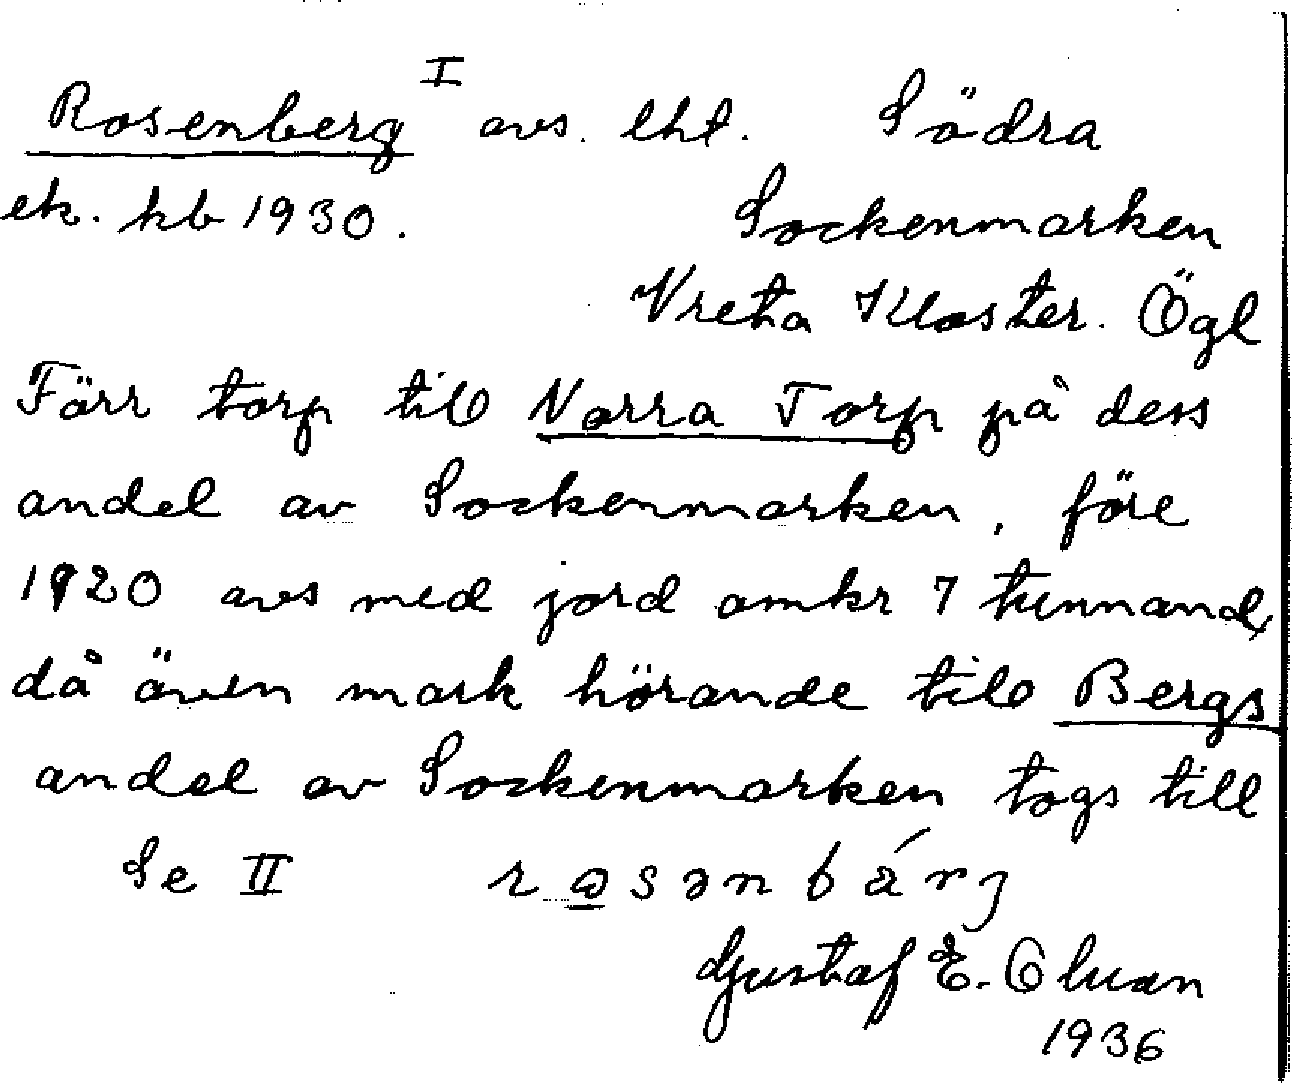 Rosenberg I avs. lht. Södra
ek. kb 1930. Sockenmarken
Vreta Kloster. Ögl
Förr torp till Norra Torp på dess
andel av Sockenmarken, före
1920 avs med jord omkr 7 tunnand,
då även mark hörande till Bergs
andel av Sockenmarken togs till
Se II rosənbárj
Gustaf E.
1936